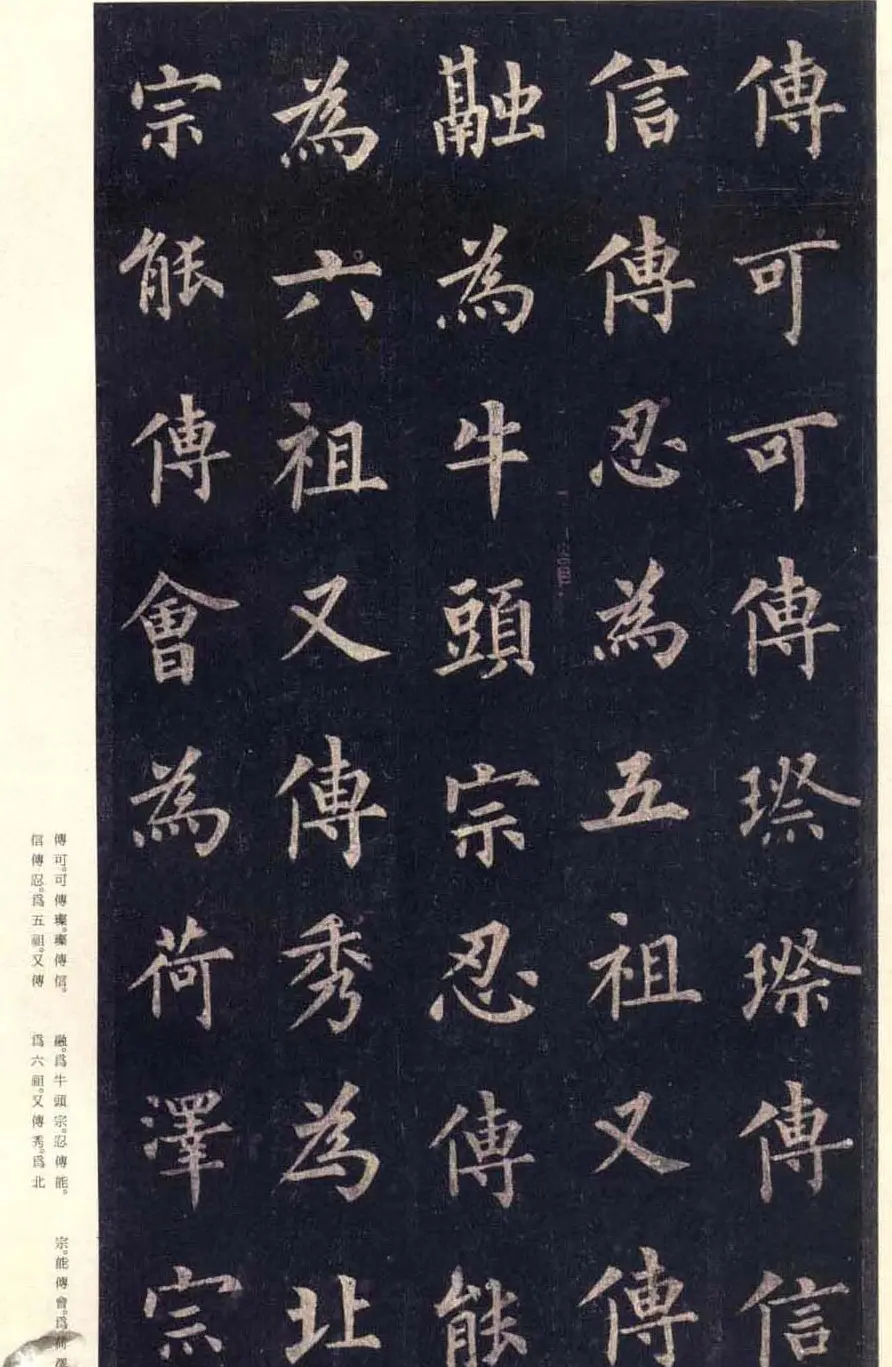 傳可可傳璨璨傳信
信傳忍為五祖又傳
融為牛頭宗忍傳能
為六祖又傳秀為北
宗能傳會為荷澤宗
傳可。可傳璨。璨傳信。
信傳忍。爲五祖。又傳
融。爲牛頭宗。忍傳能。
爲六祖。又傳秀。爲北
宗。能傳會。爲荷澤